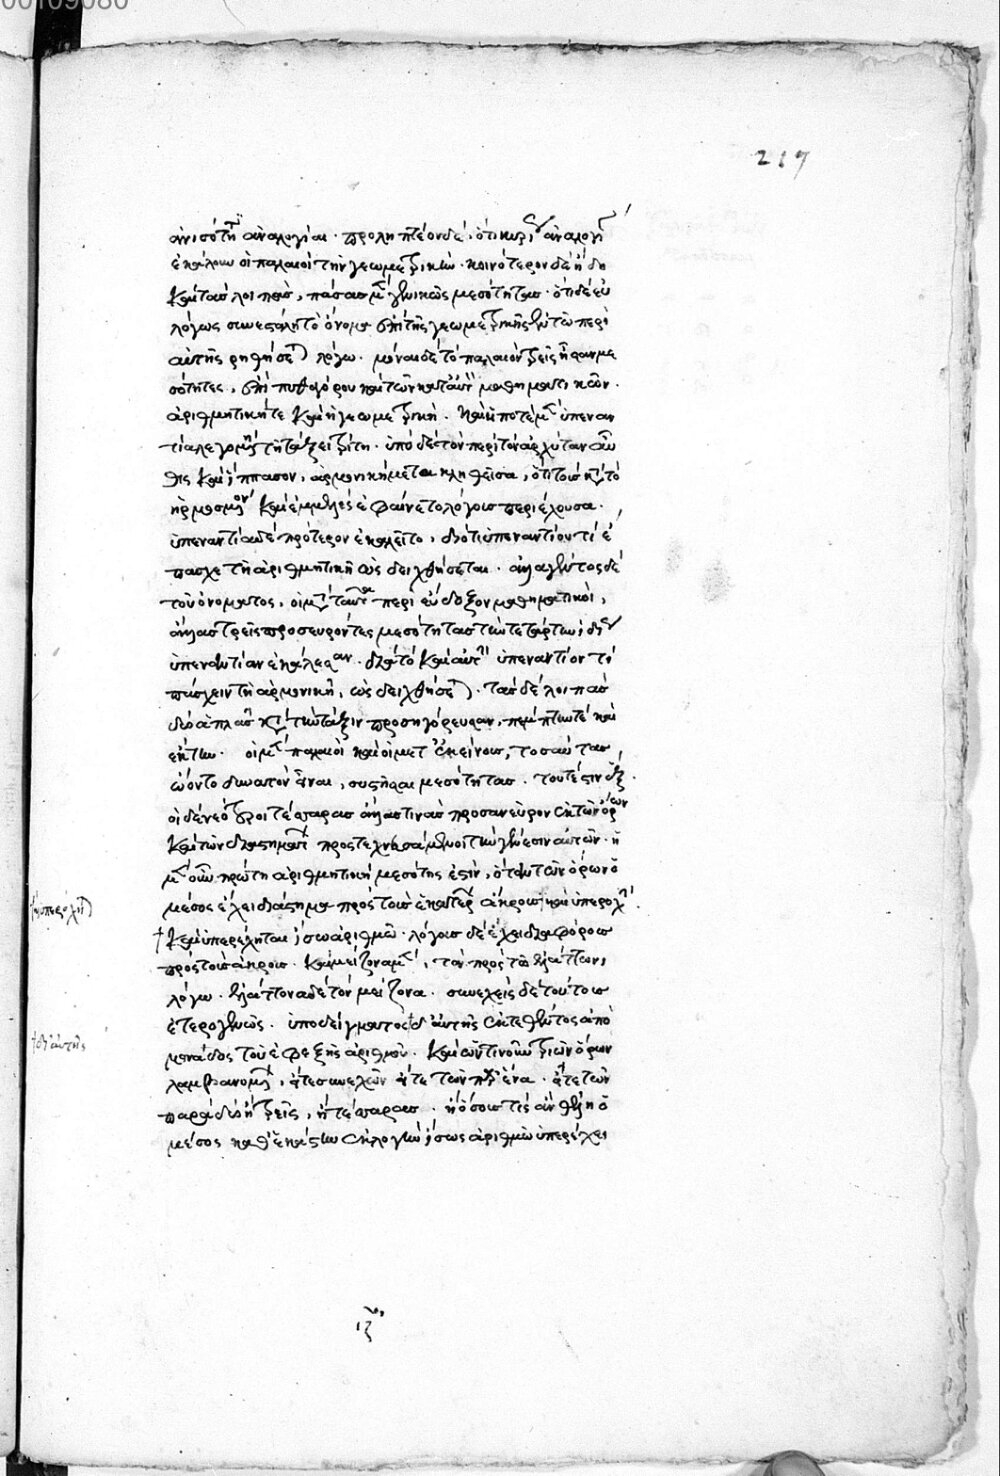 00109080
217
ἀνισότητ ἀναλογίαι · προληπτέον δέ, ὅτι κυρί ἀναλογί
ἐκάλουν οἱ παλαιοὶ τὴν γεωμετρικὴν · κοινότερον δὲ ἤδη
καὶ τὰς λοιπὰς, πάσας γενικῶς μεσότητας · ὅτι δὲ εὐ
λόγως συνεστάλη τὸ ὄνομα ἐπὶ τῆς γεωμετρικῆς ἐν τῶ περὶ
αὐτῆς ῥηθήσεται λόγω · μόναι δὲ τὸ παλαιὸν τρεῖς ἦσαν με
σότητες, ἐπὶ πυθαγόρου καὶ τῶν κατ' αὐτὸν μαθηματικῶν ·
ἀριθμητική τε καὶ ἡ γεωμετρικὴ · καὶ ἡ ποτὲ μὲν ὑπεναν
τία λεγομένη τῆ τάξει τρίτη · ὑπὸ δὲ τῶν περὶ τὸν ἀρχύταν αὖ
θις καὶ ἵππασον, ἁρμονικὴ μετακληθεῖσα, ὅτι τοὺς κατὰ τὸ
ἡρμοσμένον καὶ ἐμμελὲς ἐφαίνετο λόγους περιέχουσα ·
ὑπεναντία δὲ πρότερον ἐκαλεῖτο, διότι ὑπεναντίον τι ἔ
πασχε τῆ ἀριθμητικῆ ὡς δειχθήσεται · ἀλλαγέντος δὲ
τοῦ ὀνόματος, οἱ μετὰ ταῦτα περὶ εὔδοξον μαθηματικοὶ,
ἄλλας τρεῖς προσευρόντες μεσότητας τὴν τετάρτην ἰδίως
ὑπεναντίαν ἐκάλεσαν · διὰ τὸ καὶ αὐτὴν ὑπεναντίον τι
πάσχειν τῆ ἁρμονικῆ, ὡς δειχθήσεται · τὰς δὲ λοιπὰς
δύο ἁπλῶς κατὰ τὴν τάξιν προσηγόρευσαν, πέμπτην τε καὶ
ἕκτην · οἱ μὲν παλαιοὶ καὶ οἱ μετ' ἐκείνους, τοσαύτας
ᾤοντο δυνατὸν εἶναι, συστῆναι μεσότητας · τουτέστιν ἓξ ·
οἱ δὲ νεώτεροι τέσσαρας ἄλλας τινὰς προσανεῦρον ἐκ τῶν ὅρων
καὶ τῶν διαστημάτων προστεχνησάμενοι τὴν γένεσιν αὐτῶν · ἡ
μὲν οὖν πρώτη ἀριθμητικὴ μεσότης ἐστὶν, ὅταν τῶν ὅρων ὁ
μέσος ἔχει διάστημα πρὸς τοὺς ἑκατέρ ἄκρους καὶ ὑπεροχὴ ·
καὶ ὑπερέχηται ἴσω ἀριθμῶ · λόγους δὲ ἔχει διαφόρους
πρὸς τοὺς ἄκρους · καὶ μείζονα μὲν, τὸν πρὸς τὸν ἐλάττων,
λόγω · ἐλάττονα δὲ τὸν μείζονα · συνεχεῖς δὲ τούτους
ἑτερογενῶς · ὑποδείγματος δ' αὐτῆς ἐκτεθέντος ἀπὸ
μονάδος τοῦ ἐφεξῆς ἀριθμοῦ · καὶ ὧντινοῦν τριῶν ὅρων
λαμβανομένων, εἴτε συνεχῶν εἴτε τῶν παρ' ἕνα · εἴτε τῶν
παρὰ δύο ἢ τρεῖς, ἢ τέσσαρας · ἢ ὅσους τις ἂν θέλη ὁ
μέσος καθ' ἑκάστην ἐκλογὴν ἴσως ἀριθμῶ ὑπερέχει
ιζον